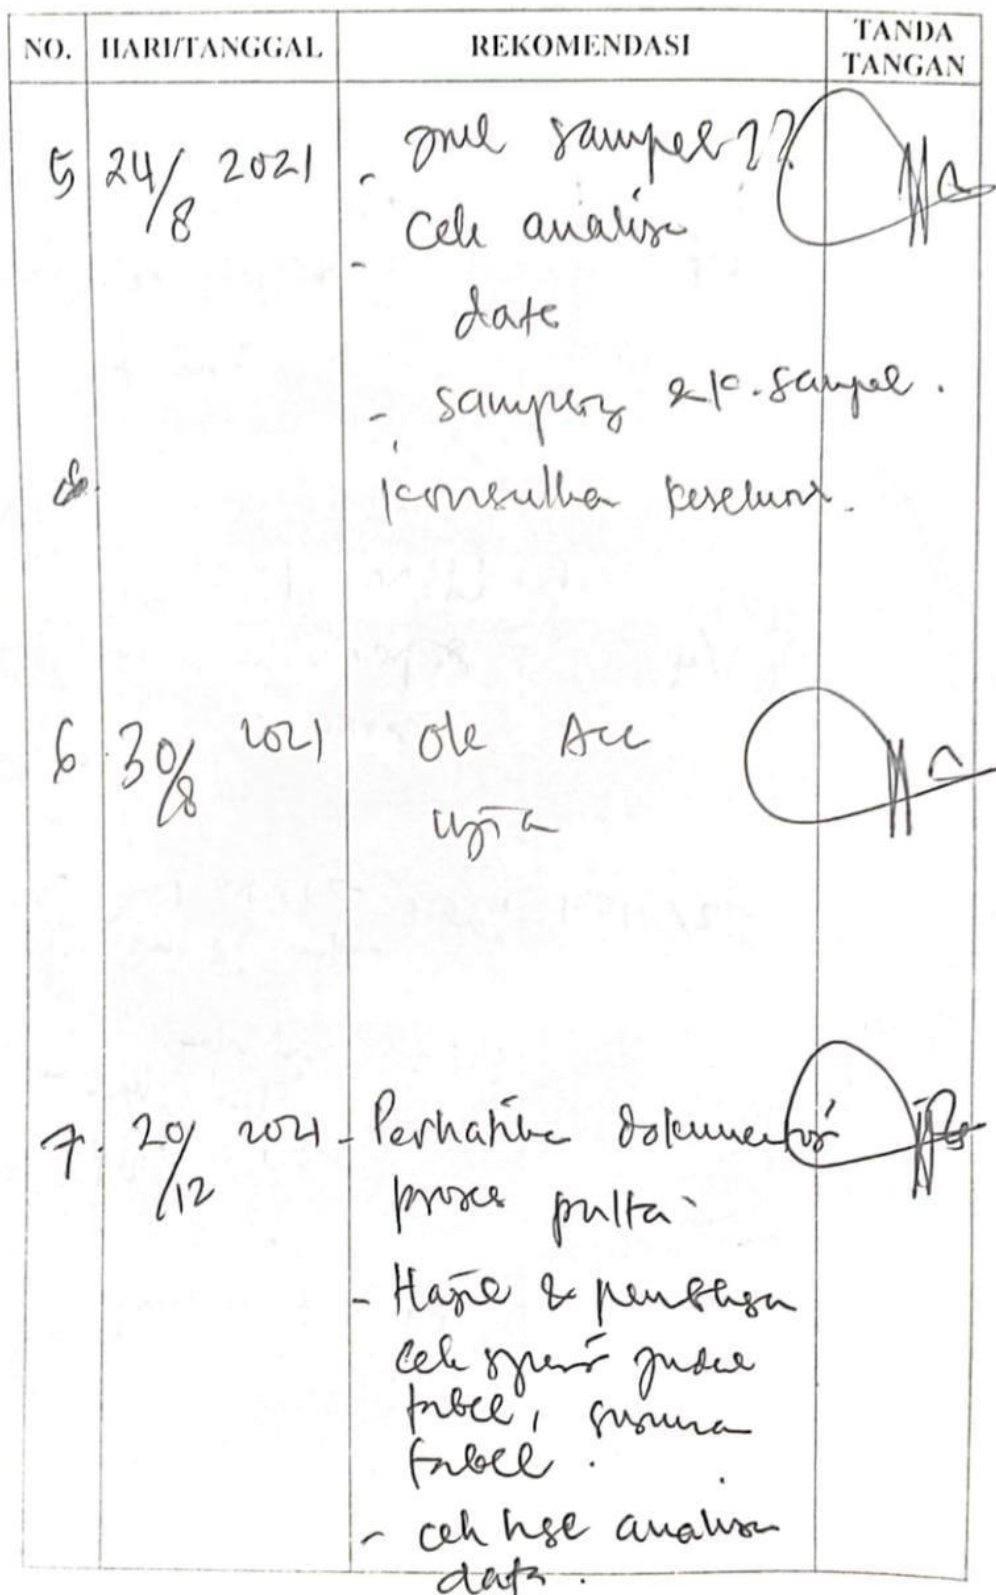 NO. HARI/TANGGAL REKOMENDASI TANDA TANGAN
5 24/8 2021 - jml sampel ??
- Cek analisa
data
- sampling & p. sampel.
konsultasi
6 30/8 2021 Ok Acc
ujian
7. 20/12 2021 - Perhatikan dokumentasi
proses
- Hasil &
cek judul
tabel, susunan
tabel.
- cek analisa
data.